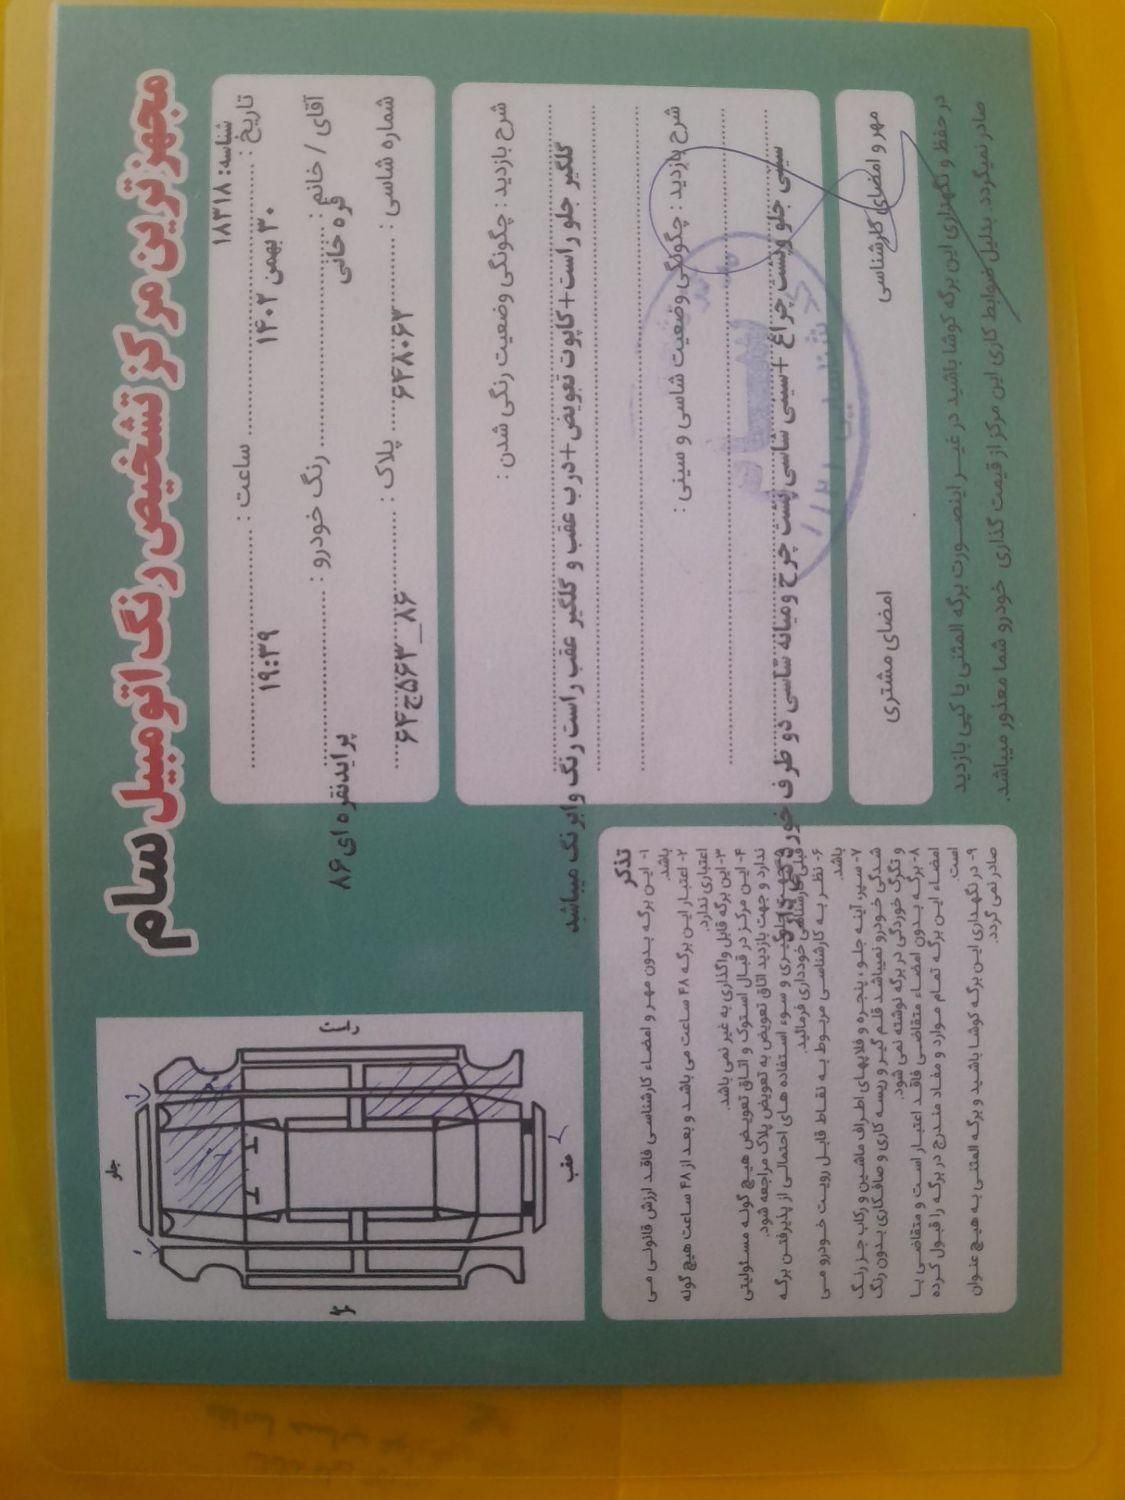 مجهز ترین مرکز تشخیص رنگ اتومبیل سام
شناسه: ۱۸۳۱۸
تاریخ : ۳۰ بهمن ۱۴۰۲ ساعت : ۱۹:۳۹
آقای / خانم : قره خانی رنگ خودرو : پرایدنقره ای ۸۶
شماره شاسی : ۶۴۸۰۶۳ پلاک : ۸۶_۵۶۳ج۶۴
شرح بازدید : چگونگی وضعیت رنگی شدن :
گلگیر جلو راست+کاپوت تعویض+درب عقب و گلگیر عقب راست رنگ وابرنگ میباشد
شرح بازدید : چگونگی وضعیت شاسی و سینی :
سینی جلو وپشت چراغ +سینی شاسی پشت چرخ ومیانه شاسی دو طرف خوردگی دارد
مهر و امضای کارشناسی
امضای مشتری
در حفظ و نگهداری این برگه کوشا باشید در غیر اینصورت برگه المثنی یا کپی بازدید
صادر نمیگردد. بدلیل ضوابط کاری این مرکز از قیمت گذاری خودرو شما معذور میباشد.
جلو
عقب
تذکر
۱- این برگه بدون مهر و امضاء کارشناسی فاقد ارزش قانونی می
باشد.
۲- اعتبار این برگه ۴۸ ساعت می باشد و بعد از ۴۸ ساعت هیچ گونه
اعتباری ندارد.
۳- این برگه قابل واگذاری به غیر نمی باشد.
۴- این مرکز در قبال استوک و اتاق تعویض هیچ گونه مسئولیتی
ندارد و جهت بازدید اتاق تعویض به تعویض پلاک مراجعه شود.
جلوگیری و سوء استفاده های احتمالی از پذیرفتن برگه
قبلی کارشناسی خودداری فرمائید.
۶- نظر به کارشناسی مربوط به نقاط قابل رویت خودرو می
باشد.
۷- سپر، آینه جلو، پنجره و قلاپهای اطراف ماشین و رکاب جز رنگ
شدگی خودرو نمیباشد قلم گیر و ریسه کاری و صافکاری بدون رنگ
و تگرگ خوردگی در برگه نوشته نمی شود.
۸- برگه بدون امضاء متقاضی فاقد اعتبار است و متقاضی با
امضاء این برگه تمام موارد و مفاد مندرج در برگه را قبول کرده
است.
۹- در نگهداری این برگه کوشا باشید و برگه المثنی به هیچ عنوان
صادر نمی گردد.